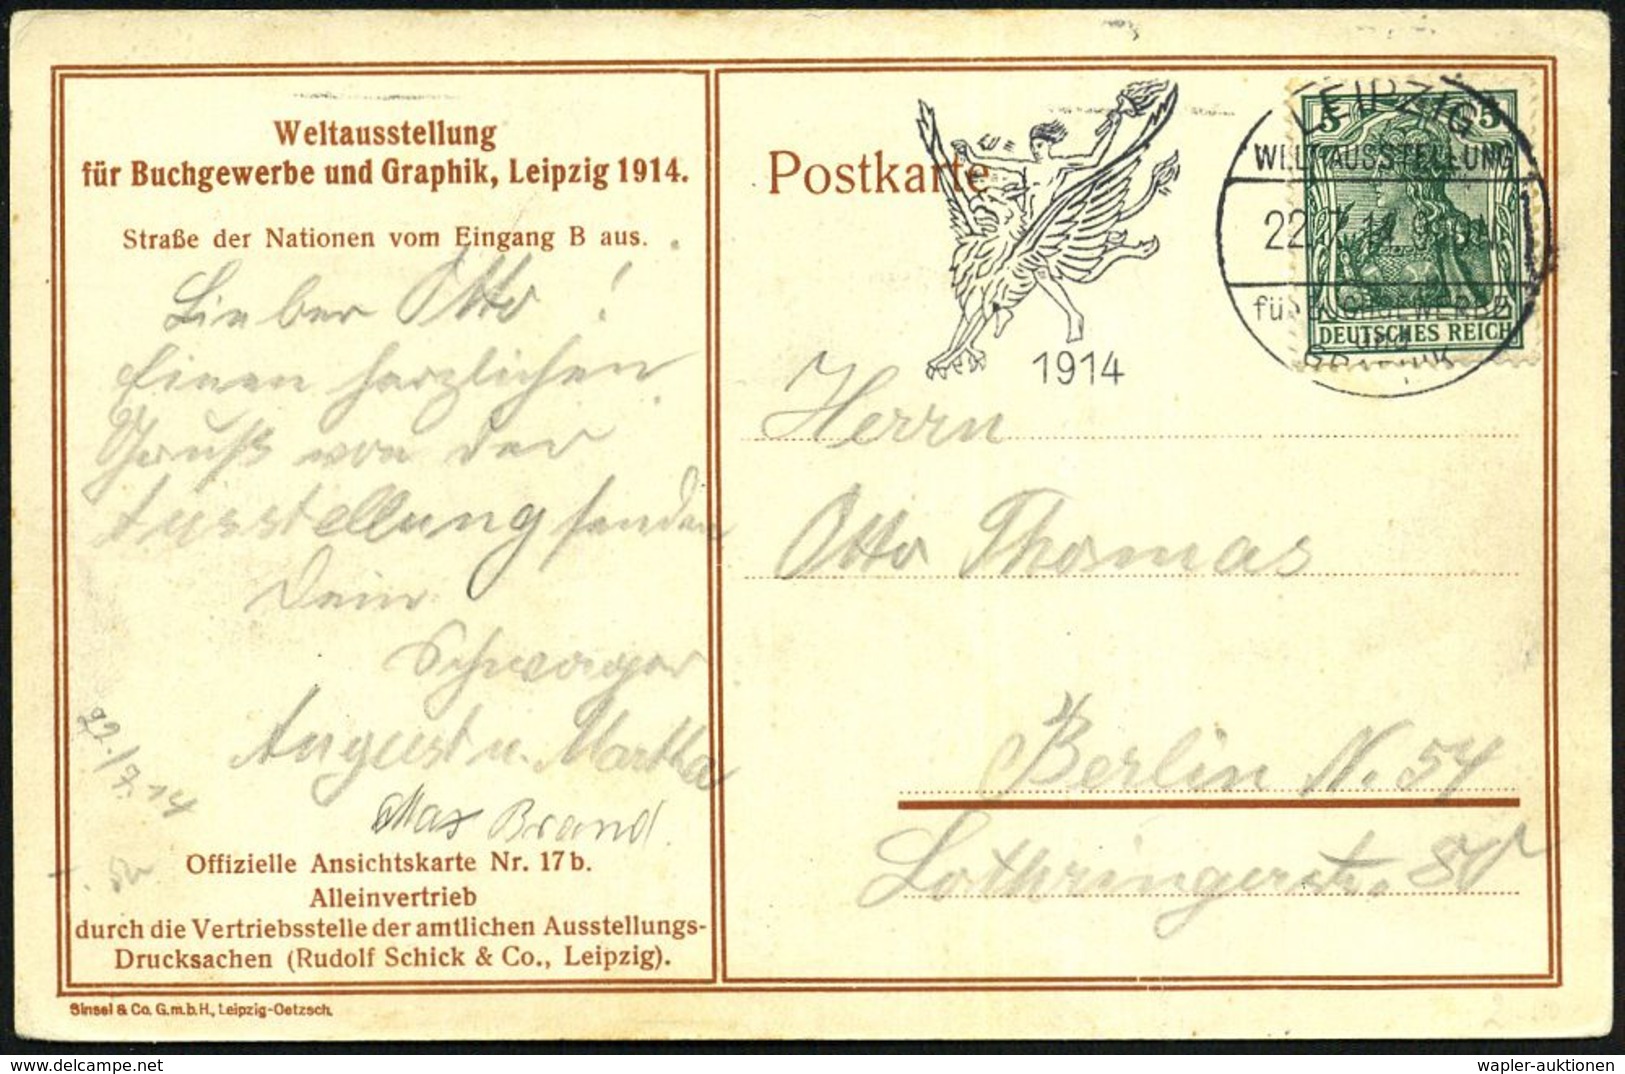 Weltausstellung
für Buchgewerbe und Graphik, Leipzig 1914.
Straße der Nationen vom Eingang B aus.
Lieber Otto!
Einen herzlichen
Gruß von der
Ausstellung senden
Dein
Schwager
August u. Martha
Max Brand
22./7.14
Offizielle Ansichtskarte Nr. 17b.
Alleinvertrieb
durch die Vertriebsstelle der amtlichen Ausstellungs-
Drucksachen (Rudolf Schick & Co., Leipzig).
Sinsel & Co. G.m.b.H., Leipzig-Oetzsch.
Postkarte
1914
LEIPZIG
WELTAUSSTELLUNG
22.7.14.
für BUCHGEWERBE
und
GRAPHIK
5 5
DEUTSCHES REICH
Herrn
Otto Thomas
Berlin N. 54
Lothringerstr.
wapler-auktionen